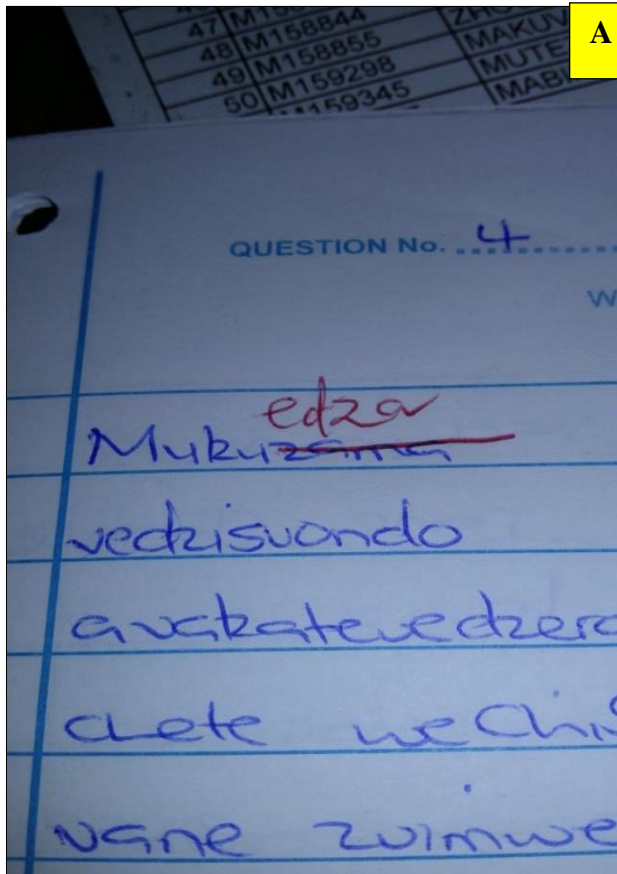 A
47 M15
48 M158844
49 M158855 MAKUV
50 M159298 MUTE
M159345 MAB
QUESTION No. 4
W
edza
Mukuzama
vedzisvondo
avakatevedzera
chete we Chis
vane zvimwe